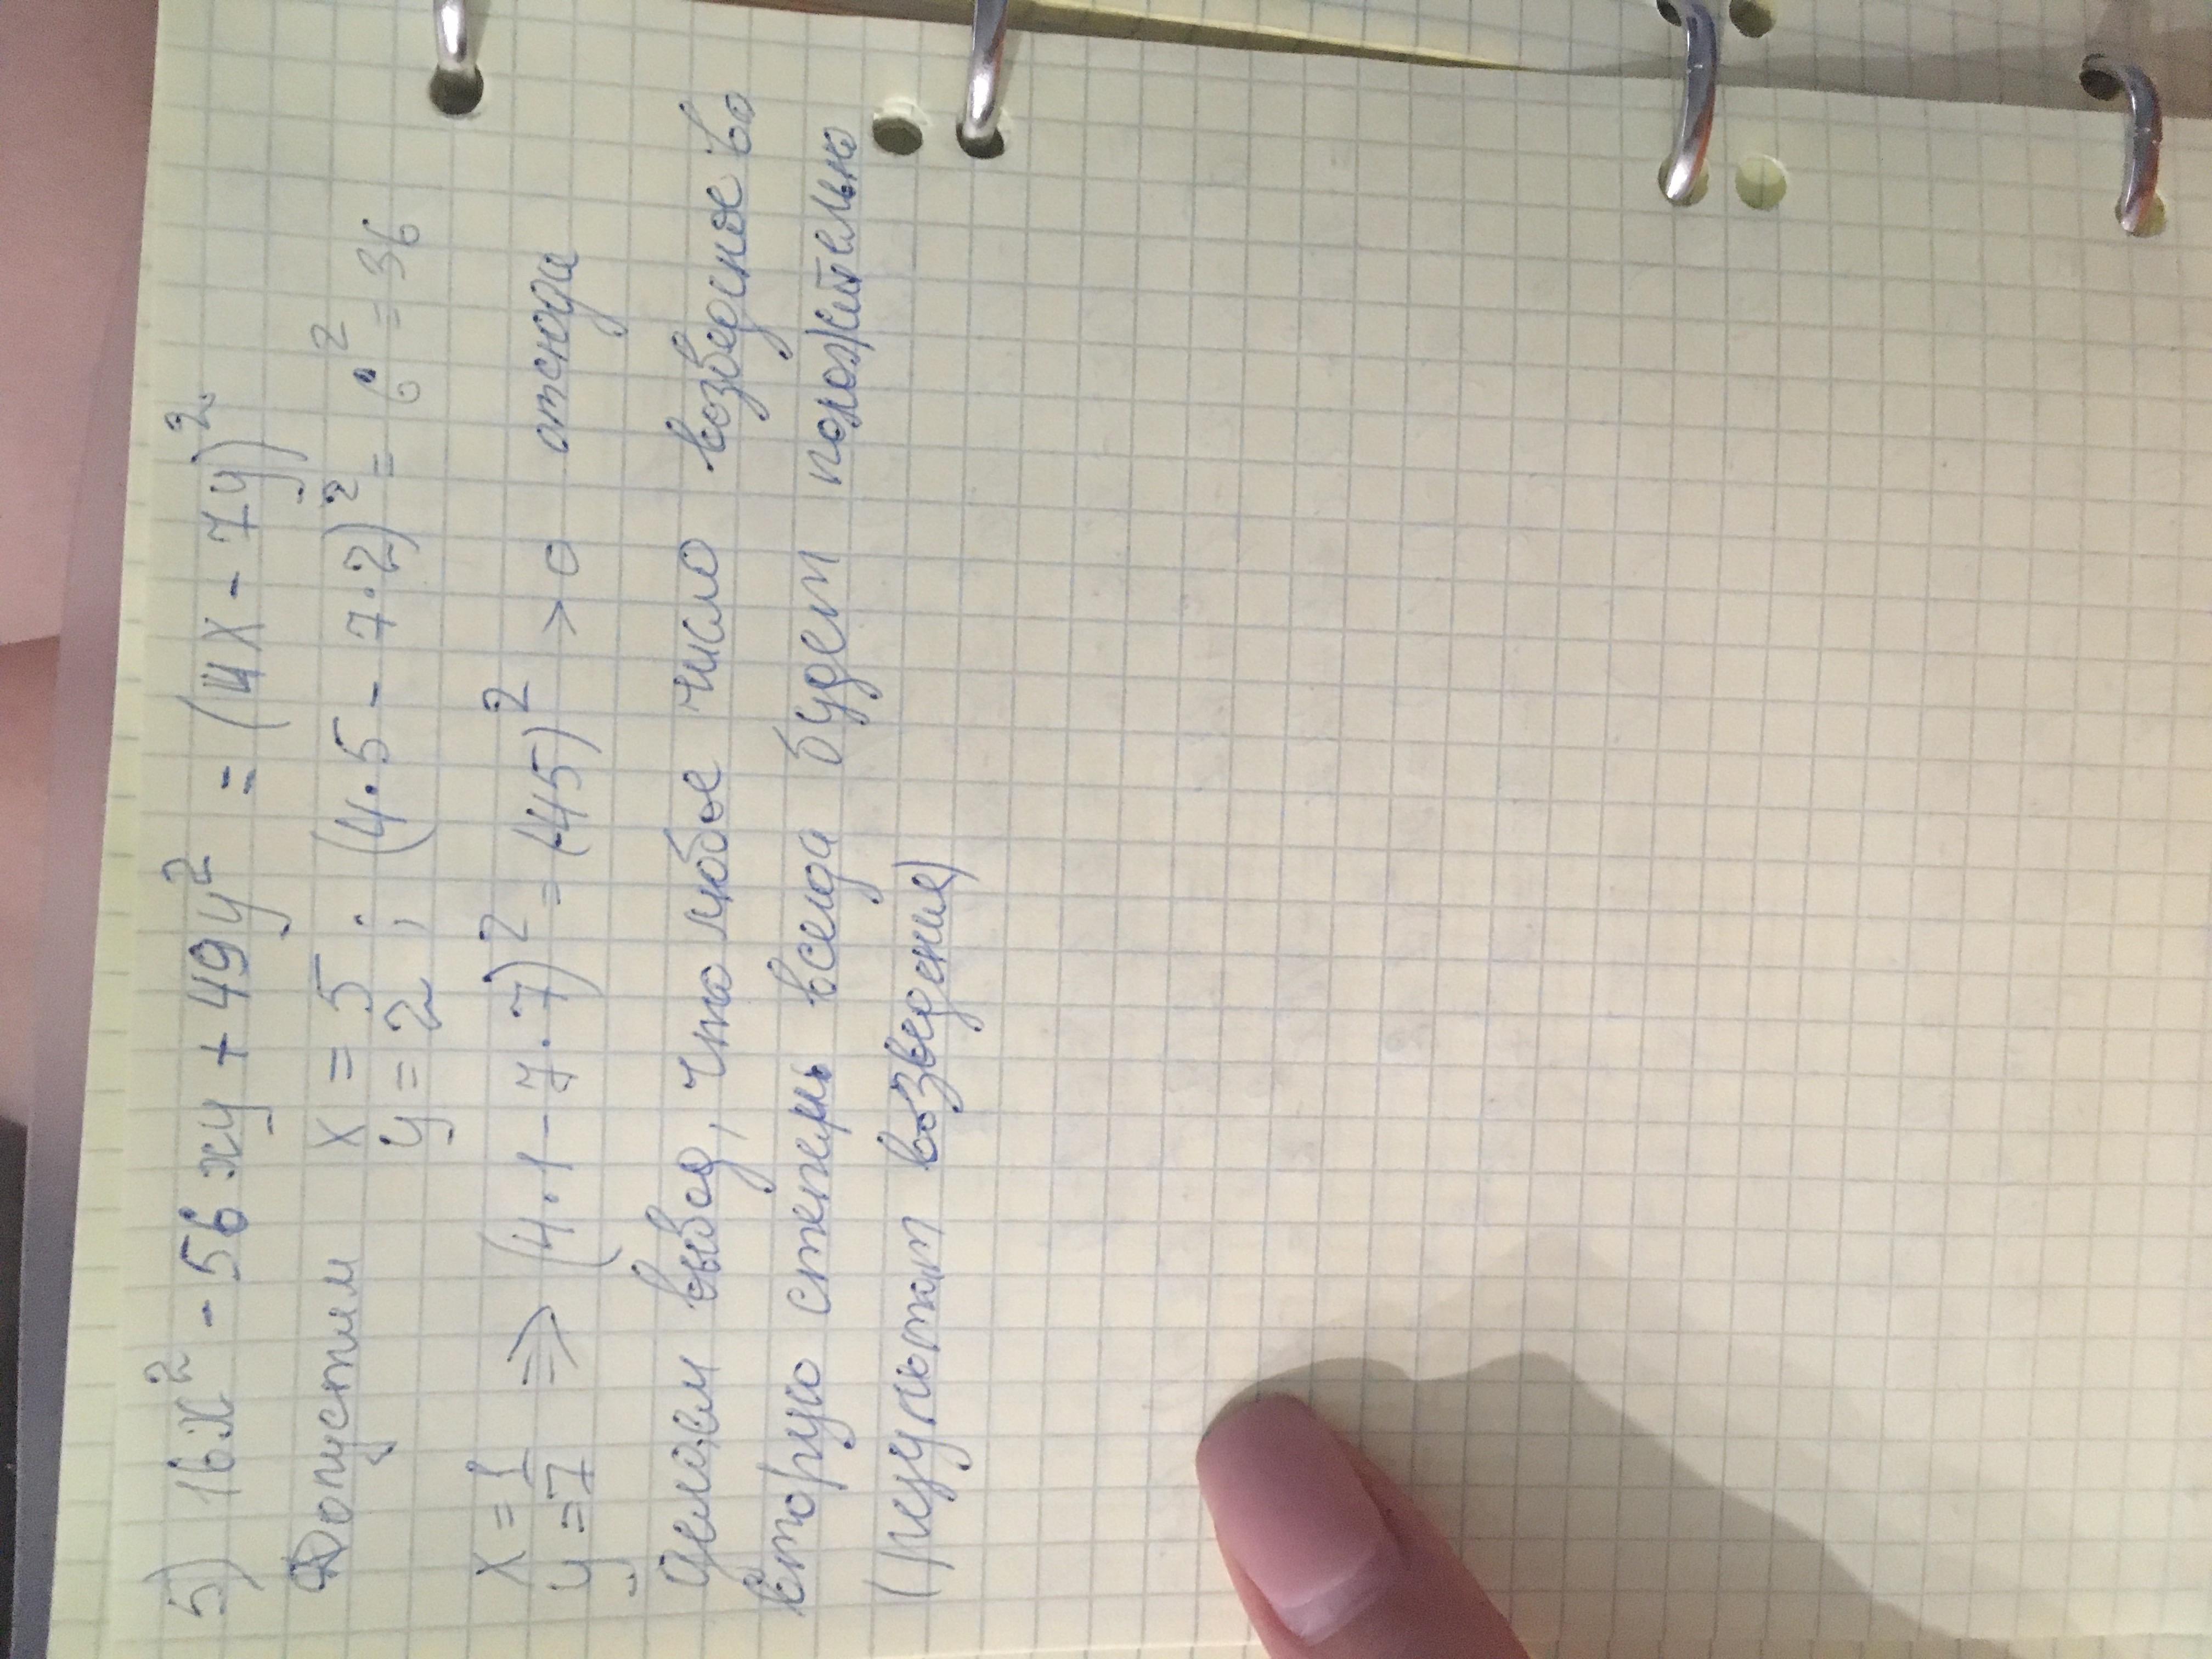 5) 16x² - 56xy + 49y² = (4x - 7y)²
Допустим x = 5 y = 2 ; (4·5 - 7·2)² = 6² = 36
x = 1 y = 7 ⇒ (4·1 - 7·7)² = (-45)² > 0 отсюда
делаем вывод, что любое число возведеное во
вторую степень всегда будет положительно
(результат возведения)